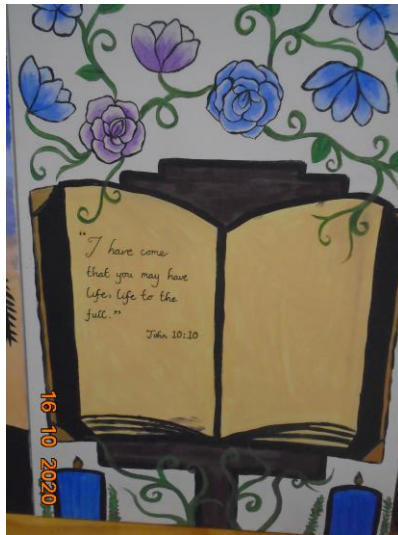 "I have come
that you may have
life, life to the
full."
John 10:10
16 10 2020